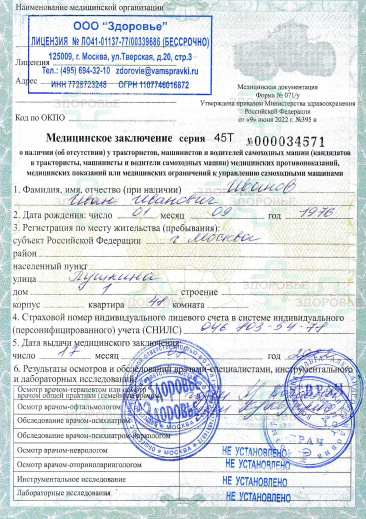 Наименование медицинской организации
ООО "Здоровье"
ЛИЦЕНЗИЯ № ЛО41-01137-77/00339686 (БЕССРОЧНО)
125009, г. Москва, ул.Тверская, д.20, стр.3
Тел.: (495) 694-32-10 zdorovie@vamspravki.ru
ИНН 7728723248 ОГРН 1107746016872
Лицензия
Адрес
Код по ОКПО
Медицинская документация
Форма № 071/у
Утверждена приказом Министерства здравоохранения
Российской Федерации
от «9» июня 2022 г. №395 н
Медицинское заключение серия 45Т №000034571
о наличии (об отсутствии) у трактористов, машинистов и водителей самоходных машин (кандидатов
в трактористы, машинисты и водители самоходных машин) медицинских противопоказаний,
медицинских показаний или медицинских ограничений к управлению самоходными машинами
1. Фамилия, имя, отчество (при наличии) Иванов
Иван Иванович
2. Дата рождения: число 01 месяц 09 год 1976
3. Регистрация по месту жительства (пребывания):
субъект Российской Федерации г Москва
район
населенный пункт
улица Пушкина
дом 1 строение
корпус квартира 48 комната
4. Страховой номер индивидуального лицевого счета в системе индивидуального
(персонифицированного) учета (СНИЛС) 046 103-54-78
5. Дата выдачи медицинского заключения:
число 17 месяц год
6. Результаты осмотров и обследований врачами-специалистами, инструментального
и лабораторных исследований
Осмотр врачом-терапевтом или
врачом общей практики (семейным врачом)
Осмотр врачом-офтальмологом
Обследование врачом-психиатром
Обследование врачом-психиатром-наркологом
Осмотр врачом-неврологом НЕ УСТАНОВЛЕНО
Осмотр врачом-оториноларингологом НЕ УСТАНОВЛЕНО
Инструментальное исследование НЕ УСТАНОВЛЕНО
Лабораторные исследования НЕ УСТАНОВЛЕНО
ЗДОРОВЬЕ
ЗДОРОВЬЕ
МОСКВА
ВРАЧ
ВРАЧ